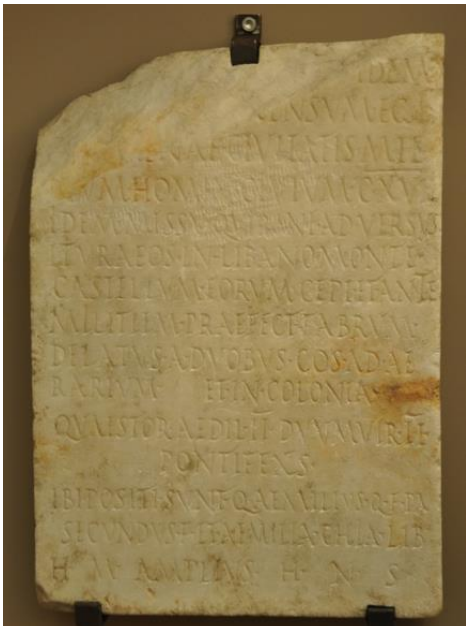 IDEM
CENSVM·EGI
CIVITATIS·MIL
HOMIN·CIVIVM·CXVII
IDEM·MISSV·QVIRINI·ADVERSVS
ITVRAEOS·IN·LIBANO·MONTE·
CASTELLVM·EORVM·CEPI·ET·ANTE
MILITIEM·PRAEFECT·FABRVM·
DELATVS·A·DVOBVS·COS·AD·AE
RARIVM ET·IN·COLONIA·
QVAESTOR·AEDIL·II·DVVMVIR·II
PONTIFEXS·
IBI·POSITI·SVNT·Q·AEMILIVS·Q·F·PAL
SECVNDVS·F·ET·AEMILIA·CHIA·LIB
H M AMPLIVS H N S